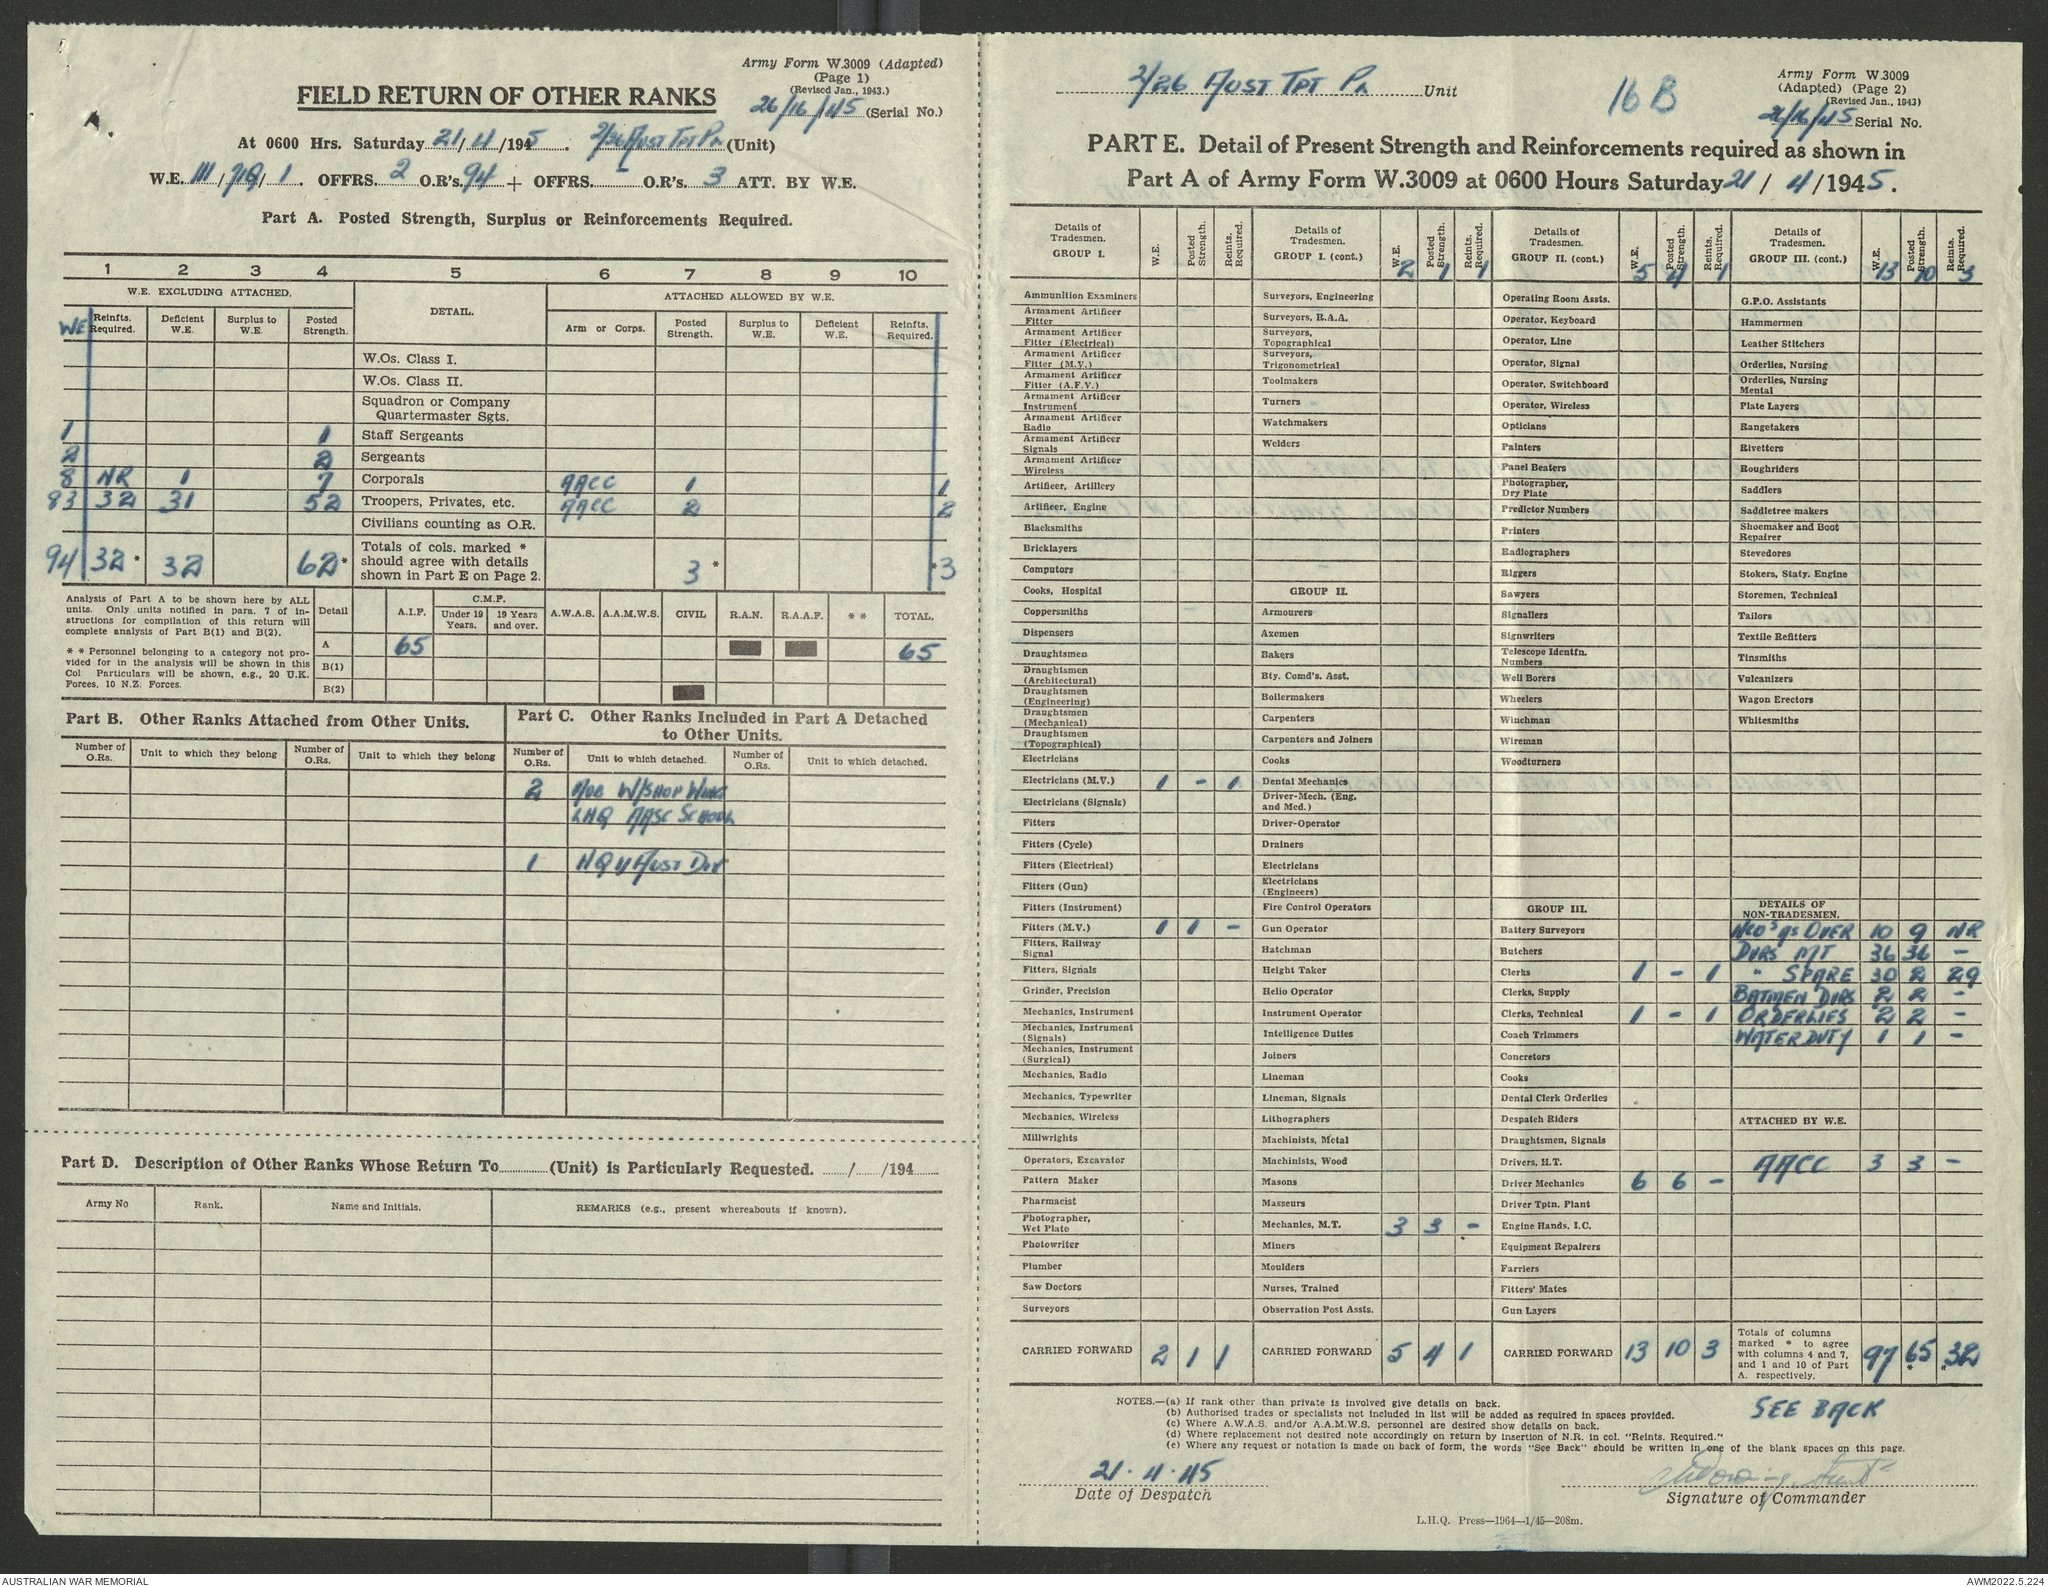 Army Form W.3009 (Adapted)
(Page 1)
(Revised Jan., 1943.)
FIELD RETURN OF OTHER RANKS
26/16/45 (Serial No.)
At 0600 Hrs. Saturday 21/4/1945. 2/26 AUST TPT PL (Unit)
W.E. III/ /1. OFFRS. 2 O.R's. 94 + OFFRS. - O.R's. 3 ATT. BY W.E.
Part A. Posted Strength, Surplus or Reinforcements Required.
1 2 3 4 5 6 7 8 9 10
W.E. EXCLUDING ATTACHED. DETAIL. ATTACHED ALLOWED BY W.E.
WE Reinfts. Required. Deficient W.E. Surplus to W.E. Posted Strength. Arm or Corps. Posted Strength. Surplus to W.E. Deficient W.E. Reinfts. Required.
W.Os. Class I.
W.Os. Class II.
Squadron or Company Quartermaster Sgts.
1 1 Staff Sergeants
2 2 Sergeants
8 NR 1 7 Corporals AACC 1 1
83 32 31 52 Troopers, Privates, etc. AACC 2 2
Civilians counting as O.R.
94 32 * 32 62 * Totals of cols. marked * should agree with details shown in Part E on Page 2. 3 * * 3
Analysis of Part A to be shown here by ALL units. Only units notified in para. 7 of instructions for compilation of this return will complete analysis of Part B(1) and B(2).
* * Personnel belonging to a category not provided for in the analysis will be shown in this Col Particulars will be shown, e.g., 20 U.K. Forces, 10 N.Z. Forces.
Detail A.I.F. C.M.F. Under 19 Years. 19 Years and over. A.W.A.S. A.A.M.W.S. CIVIL R.A.N. R.A.A.F. * * TOTAL.
A 65 65
B(1)
B(2)
Part B. Other Ranks Attached from Other Units.
Number of O.Rs. Unit to which they belong Number of O.Rs. Unit to which they belong
Part C. Other Ranks Included in Part A Detached to Other Units.
Number of O.Rs. Unit to which detached. Number of O.Rs. Unit to which detached.
2 MOB W/SHOP WING
LHQ AASC SCHOOL
1 HQ 11 AUST DIV
Part D. Description of Other Ranks Whose Return To (Unit) is Particularly Requested. / /194
Army No Rank. Name and Initials. REMARKS (e.g., present whereabouts if known).
2/26 AUST TPT PL Unit
16 B
Army Form W.3009
(Adapted) (Page 2)
(Revised Jan., 1943)
26/16/45 Serial No.
PART E. Detail of Present Strength and Reinforcements required as shown in
Part A of Army Form W.3009 at 0600 Hours Saturday 21/4/1945.
Details of Tradesmen. GROUP I. W.E. Posted Strength. Reints. Required.
Ammunition Examiners
Armament Artificer Fitter
Armament Artificer Fitter (Electrical)
Armament Artificer Fitter (M.V.)
Armament Artificer Fitter (A.F.V.)
Armament Artificer Instrument
Armament Artificer Radio
Armament Artificer Signals
Armament Artificer Wireless
Artificer, Artillery
Artificer, Engine
Blacksmiths
Bricklayers
Computors
Cooks, Hospital
Coppersmiths
Dispensers
Draughtsmen
Draughtsmen (Architectural)
Draughtsmen (Engineering)
Draughtsmen (Mechanical)
Draughtsmen (Topographical)
Electricians
Electricians (M.V.) 1 - 1
Electricians (Signals)
Fitters
Fitters (Cycle)
Fitters (Electrical)
Fitters (Gun)
Fitters (Instrument)
Fitters (M.V.) 1 1 -
Fitters, Railway Signal
Fitters, Signals
Grinder, Precision
Mechanics, Instrument
Mechanics, Instrument (Signals)
Mechanics, Instrument (Surgical)
Mechanics, Radio
Mechanics, Typewriter
Mechanics, Wireless
Millwrights
Operators, Excavator
Pattern Maker
Pharmacist
Photographer, Wet Plate
Photowriter
Plumber
Saw Doctors
Surveyors
CARRIED FORWARD 2 1 1
Details of Tradesmen. GROUP I. (cont.) W.E. 2 Posted Strength. 1 Reints. Required. 1
Surveyors, Engineering
Surveyors, R.A.A.
Surveyors, Topographical
Surveyors, Trigonometrical
Toolmakers
Turners
Watchmakers
Welders
GROUP II.
Armourers
Axemen
Bakers
Bty. Comd's. Asst.
Boilermakers
Carpenters
Carpenters and Joiners
Cooks
Dental Mechanics
Driver-Mech. (Eng. and Med.)
Driver-Operator
Drainers
Electricians
Electricians (Engineers)
Fire Control Operators
Gun Operator
Hatchman
Height Taker
Helio Operator
Instrument Operator
Intelligence Duties
Joiners
Lineman
Lineman, Signals
Lithographers
Machinists, Metal
Machinists, Wood
Masons
Masseurs
Mechanics, M.T. 3 3 -
Miners
Moulders
Nurses, Trained
Observation Post Assts.
CARRIED FORWARD 5 4 1
Details of Tradesmen. GROUP II. (cont.) W.E. 5 Posted Strength. 4 Reints. Required. 1
Operating Room Assts.
Operator, Keyboard
Operator, Line
Operator, Signal
Operator, Switchboard
Operator, Wireless
Opticians
Painters
Panel Beaters
Photographer, Dry Plate
Predictor Numbers
Printers
Radiographers
Riggers
Sawyers
Signallers
Signwriters
Telescope Identfn. Numbers
Well Borers
Wheelers
Winchman
Wireman
Woodturners
GROUP III.
Battery Surveyors
Butchers
Clerks 1 - 1
Clerks, Supply
Clerks, Technical 1 - 1
Coach Trimmers
Concretors
Cooks
Dental Clerk Orderlies
Despatch Riders
Draughtsmen, Signals
Drivers, H.T.
Driver Mechanics 6 6 -
Driver Tptn. Plant
Engine Hands, I.C.
Equipment Repairers
Farriers
Fitters' Mates
Gun Layers
CARRIED FORWARD 13 10 3
Details of Tradesmen. GROUP III. (cont.) W.E. 13 Posted Strength. 10 Reints. Required. 3
G.P.O. Assistants
Hammermen
Leather Stitchers
Orderlies, Nursing
Orderlies, Nursing Mental
Plate Layers
Rangetakers
Rivetters
Roughriders
Saddlers
Saddletree makers
Shoemaker and Boot Repairer
Stevedores
Stokers, Staty. Engine
Storemen, Technical
Tailors
Textile Refitters
Tinsmiths
Vulcanizers
Wagon Erectors
Whitesmiths
DETAILS OF NON-TRADESMEN.
NCO's as OVER 10 9 NR
DVRS MT 36 36 -
" SPARE 30 2 29
BATMEN DVRS 2 2 -
ORDERLIES 2 2 -
WATER DUTY 1 1 -
ATTACHED BY W.E.
AACC 3 3 -
Totals of columns marked * to agree with columns 4 and 7, and 1 and 10 of Part A. respectively. 97 65 * 32 *
NOTES.—(a) If rank other than private is involved give details on back.
(b) Authorised trades or specialists not included in list will be added as required in spaces provided.
(c) Where A.W.A.S. and/or A.A.M.W.S. personnel are desired show details on back.
(d) Where replacement not desired note accordingly on return by insertion of N.R. in col. "Reints. Required."
(e) Where any request or notation is made on back of form, the words "See Back" should be written in one of the blank spaces on this page.
SEE BACK
21.4.45
Date of Despatch
Signature of Commander
L.H.Q. Press—1964—1/45—208m.
AUSTRALIAN WAR MEMORIAL
AWM2022.5.224